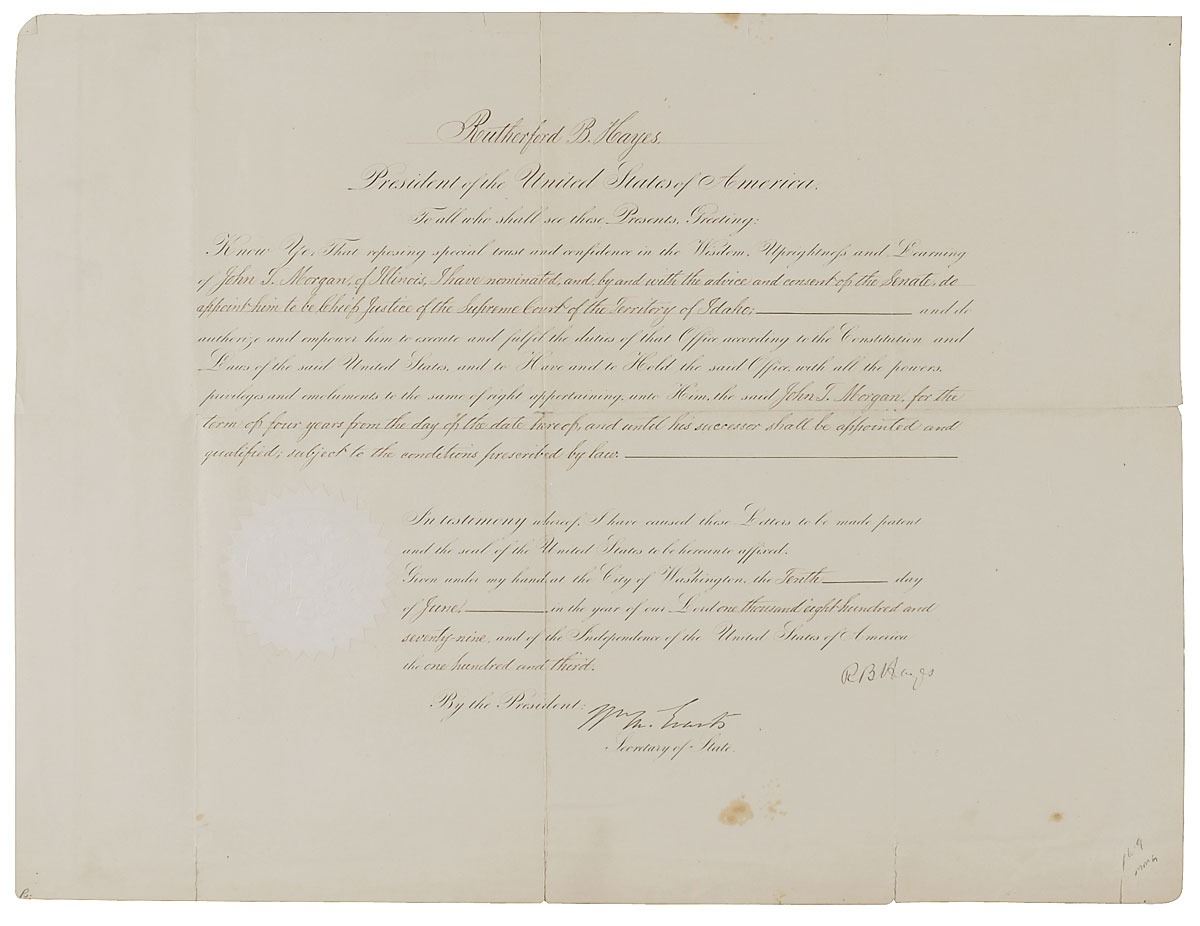 Rutherford B. Hayes,
President of the United States of America.
To all who shall see these Presents, Greeting:
Know Ye, That reposing special trust and confidence in the Wisdom, Uprightness and Learning
of John T. Morgan, of Illinois, I have nominated, and, by and with the advice and consent of the Senate, do
appoint him to be Chief Justice of the Supreme Court of the Territory of Idaho; and do
authorize and empower him to execute and fulfil the duties of that Office according to the Constitution and
Laws of the said United States, and to Have and to Hold the said Office, with all the powers,
privileges and emoluments to the same of right appertaining, unto Him, the said John T. Morgan, for the
term of four years from the day of the date hereof, and until his successor shall be appointed and
qualified; subject to the conditions prescribed by law.
In testimony whereof, I have caused these Letters to be made patent
and the seal of the United States to be hereunto affixed.
Given under my hand, at the City of Washington, the Tenth day
of June, in the year of our Lord one thousand eight hundred and
seventy-nine, and of the Independence of the United States of America
the one hundred and third.
R B Hayes
By the President:
Wm. M. Evarts
Secretary of State.